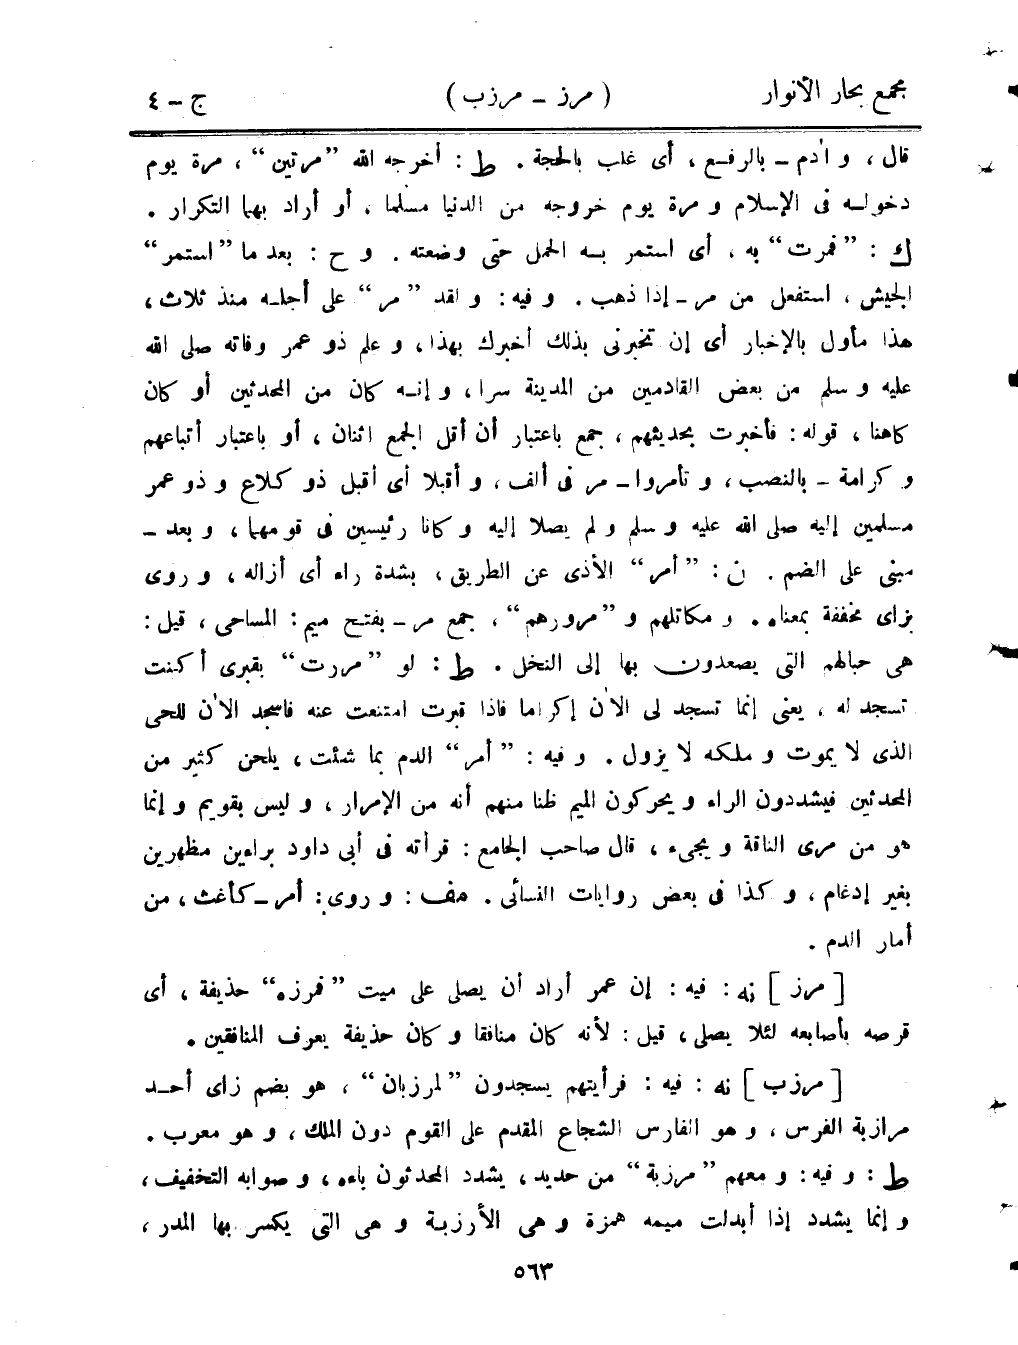 مجمع بحار الأنوار ( مرز - مرزب ) ج - ٤
قال ، و اٰدم - بالرفع ، أى غلب بالحجة . ط : أخرجه الله ”مرتين“ ، مرة يوم
دخوله فى الإسلام و مرة يوم خروجه من الدنيا مسلما ، أو أراد بهما التكرار .
ك : ”فمرت“ به ، أى استمر به الحمل حتى وضعته . و ح : بعد ما ”استمر“
الجيش ، استفعل من مر - إذا ذهب . و فيه : و لقد ”مر“ على أجله منذ ثلاث ،
هذا مأول بالإخبار أى إن تخبرنى بذلك أخبرك بهذا ، و علم ذو عمر وفاته صلى الله
عليه و سلم من بعض القادمين من المدينة سرا ، و إنه كان من المحدثين أو كان
كاهنا ، قوله : فأخبرت بحديثهم ، جمع باعتبار أن أقل الجمع اثنان ، أو باعتبار أتباعهم
و كرامة - بالنصب ، و تأمروا - مر فى ألف ، و أقبلا أى أقبل ذو كلاع و ذو عمر
مسلمين إليه صلى الله عليه و سلم و لم يصلا إليه و كانا رئيسين فى قومهما ، و بعد -
مبنى على الضم . ن : ”أمر“ الأذى عن الطريق ، بشدة راء أى أزاله ، و روى
بزاى مخففة بمعناه . و مكاتلهم و ”مرورهم“ ، جمع مر - بفتح ميم : المساحى ، قيل :
هى حبالهم التى يصعدون بها إلى النخل . ط : لو ”مررت“ بقبرى أكنت
تسجد له ، يعنى إنما تسجد لى الاٰن إكراما فاذا قبرت امتنعت عنه فاسجد الاٰن للحى
الذى لا يموت و ملكه لا يزول . و فيه : ”أمر“ الدم بما شئت ، يلحن كثير من
المحدثين فيشددون الراء و يحركون الميم ظنا منهم أنه من الإمرار ، و ليس بقويم و إنما
هو من مرى الناقة و يجىء ، قال صاحب الجامع : قرأته فى أبى داود براءين مظهرين
بغير إدغام ، و كذا فى بعض روايات النسائى . مف : و روى : أمر - كأغث ، من
أمار الدم .
[ مرز ] نه : فيه : إن عمر أراد أن يصلى على ميت ”فمرزه“ حذيفة ، أى
قرصه بأصابعه لئلا يصلى ، قيل : لأنه كان منافقا و كان حذيفة يعرف المنافقين .
[ مرزب ] نه : فيه : فرأيتهم يسجدون ”لمرزبان“ ، هو بضم زاى أحد
مرازبة الفرس ، و هو الفارس الشجاع المقدم على القوم دون الملك ، و هو معرب .
ط : و فيه : و معهم ”مرزبة“ من حديد ، يشدد المحدثون باءه ، و صوابه التخفيف ،
و إنما يشدد إذا أبدلت ميمه همزة و هى الأرزبة و هى التى يكسر بها المدر ،
٥٦٣